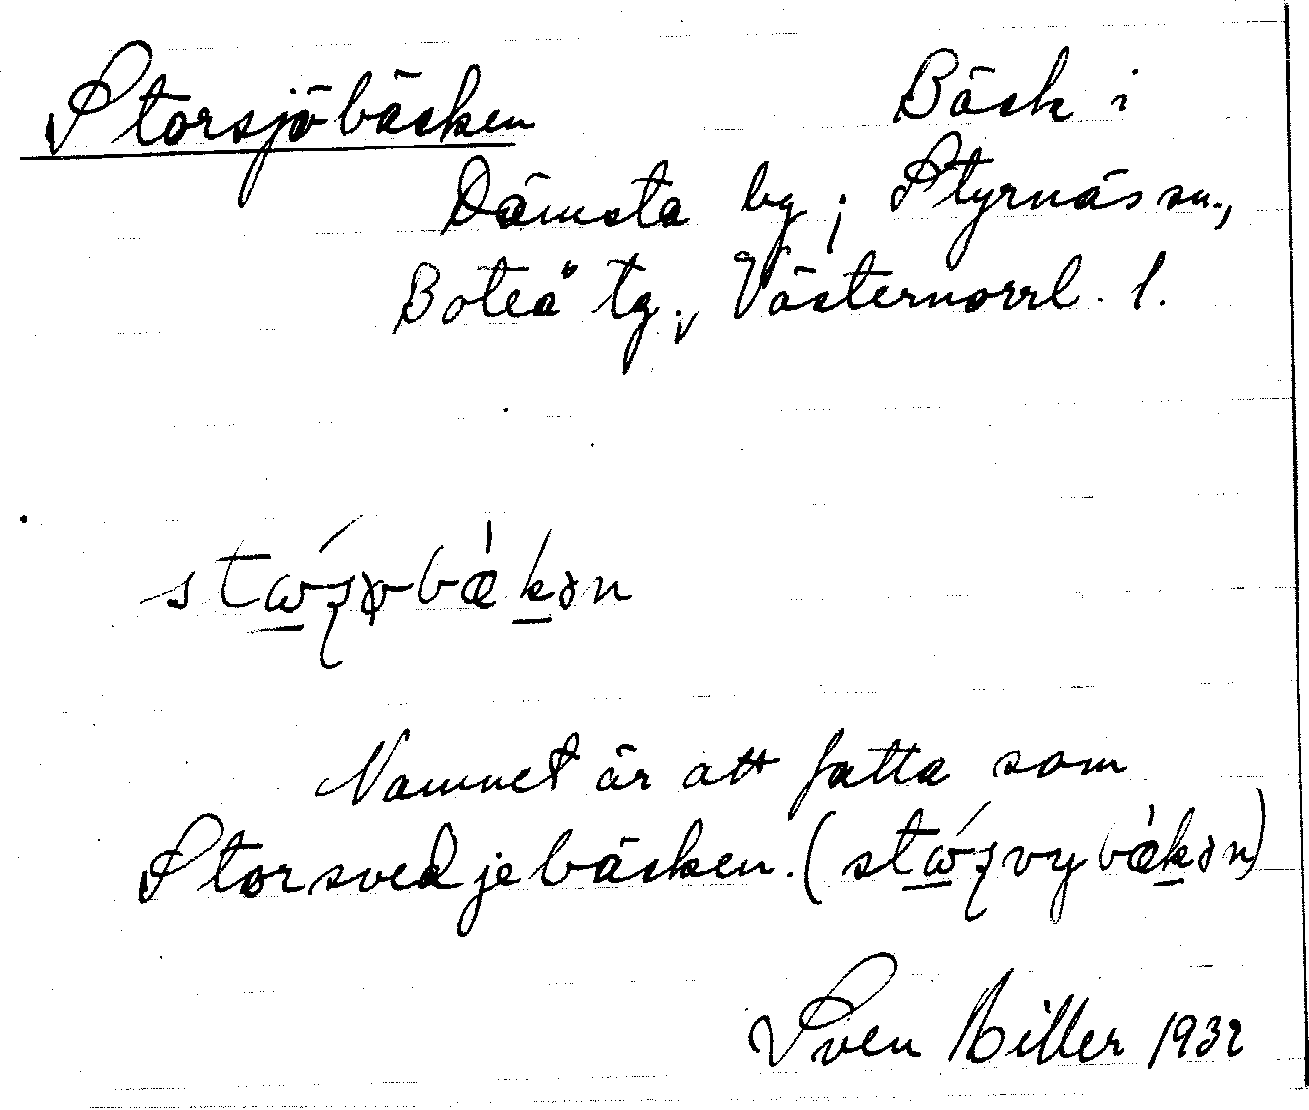 Storsjöbäcken Bäck i
Dämsta by; Styrnäs sn.,
Boteå tg., Västernorrl. l.
Namnet är att fatta som
Storsvedjebäcken. (
Sven Hiller 1932